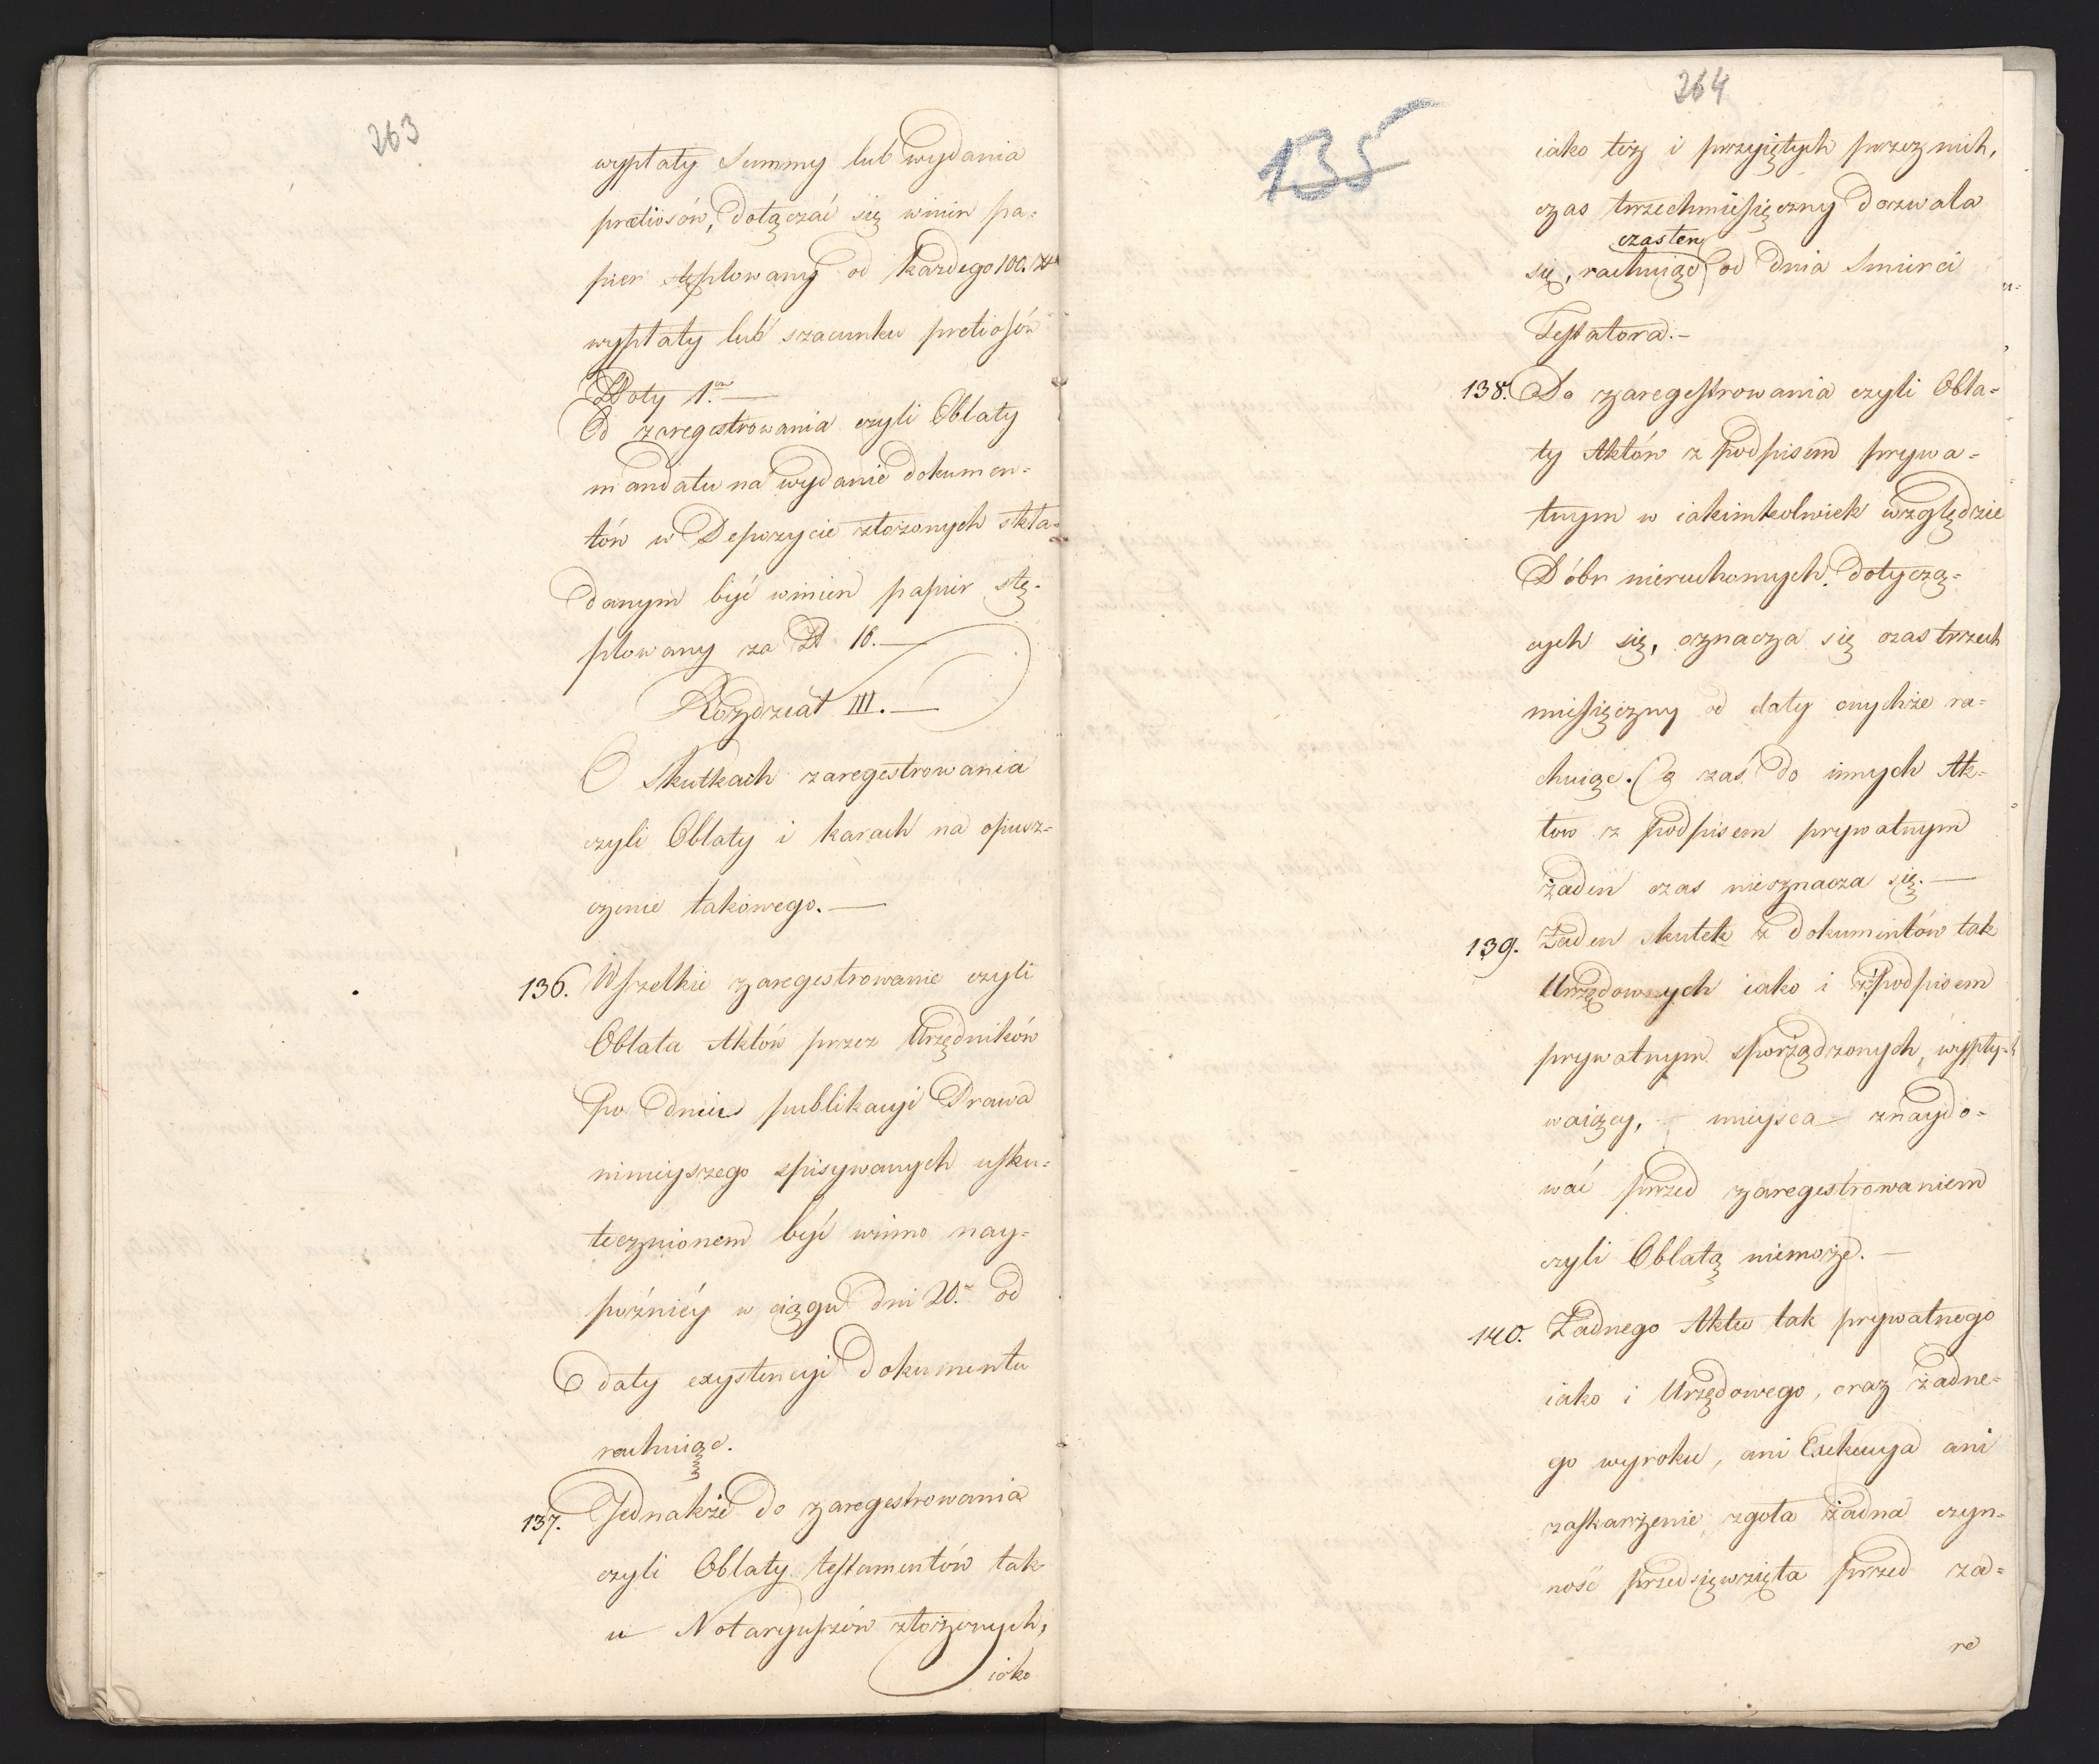 263
wypłaty Summy lub wydania
pretiosów, dołączać się winien pa-
pier stęplowany od każdego 100. Zł
wypłaty lub szacunku pretiosów
Złoty 1.en —
Od zaregestrowania czyli Oblaty
mandatu na wydanie dokumen-
tów w Depozycie złożonych skła-
danym być winien papier stę-
plowany za Zł 10. —
Rozdział III. —
O Skutkach zaregestrowania
czyli Oblaty i karach na opusz-
czenie takowego. —
136. Wszelkie zaregestrowanie czyli
Oblata Aktów przez Urzędników
po dniu publikacyi Prawa
ninieyszego spisywanych usku-
tecznionem być winno nay-
poźniéy w ciągu dni 20. od
daty exystencyi dokumentu
rachuiąc.
137. Jednakże do zaregestrowania
czyli Oblaty testamentów tak
u Notaryuszów złożonych,
iako
264
135
iako też i przyiętych przez nich,
czas trzechmiesięczny dozwala
czas ten
się, rachuiąc od dnia Smierci
Testatora. —
138. Do zaregestrowania czyli Obla-
ty Aktów z podpisem prywa-
tnym w iakimkolwiek względzie
Dóbr nieruchomych dotyczą-
cych się, oznacza się czas trzech
miesięczny od daty onychże ra-
chuiąc. Co zaś do innych Ak-
tow z podpisem prywatnym
żaden czas nieoznacza się. —
139. Żaden skutek z dokumentów tak
Urzędowych iako i z podpisem
prywatnym sporządzonych, wypły-
waiący, — mieysca — znaydo-
wać przed zaregestrowaniem
czyli Oblatą niemoże. —
140. Żadnego Aktu tak prywatnego
iako i Urzędowego, oraz żadne-
go wyroku, ani Exekucya ani
zaskarżenie zgoła żadna czyn-
ność przedsięwzięta przed za-
re